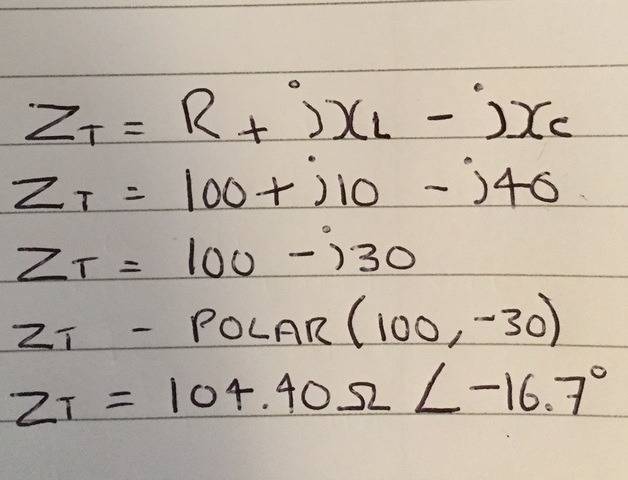 Z_T = R + jX_L - jX_C
Z_T = 100 + j10 - j40
Z_T = 100 - j30
Z_T - POLAR (100, -30)
Z_T = 104.40Ω ∠ -16.7°